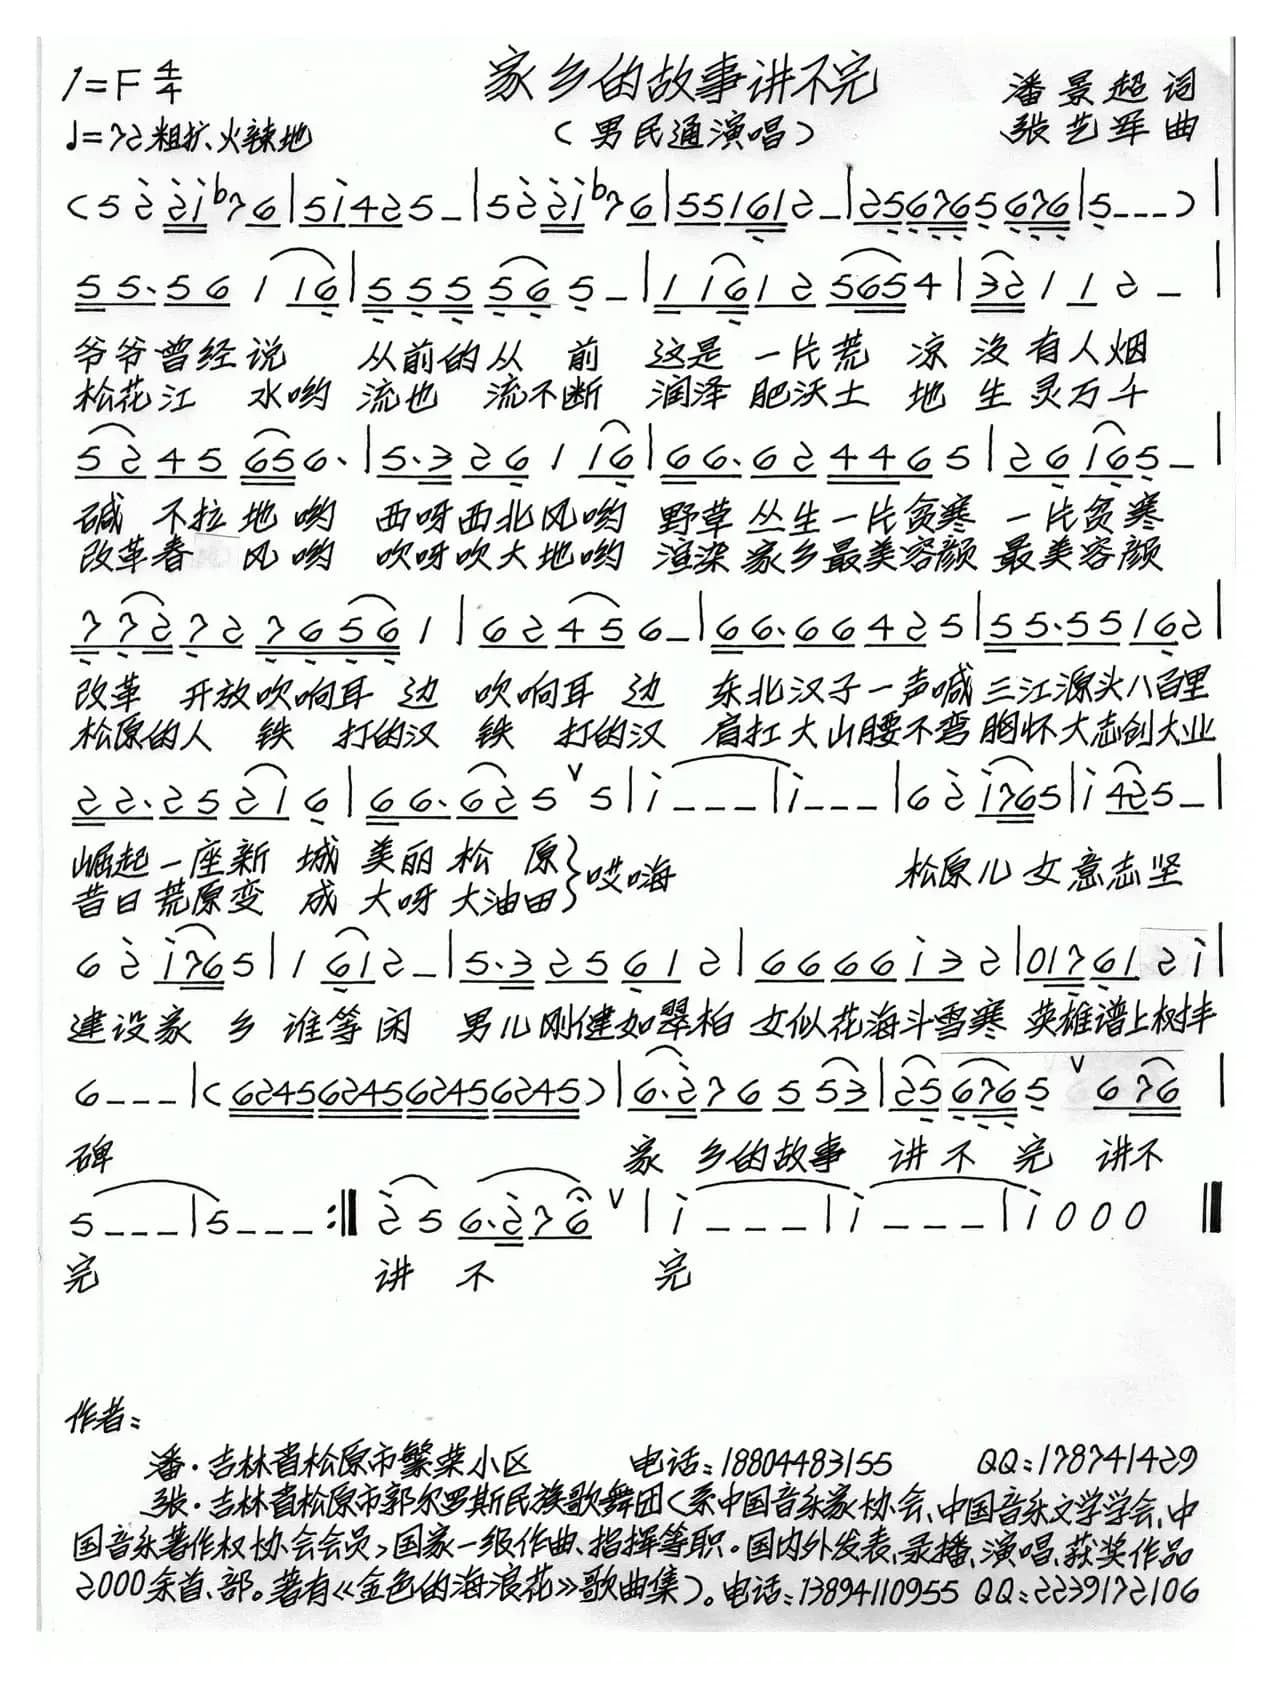 1=F 4/4
家乡的故事讲不完
潘景超 词
♩=72 粗犷、火辣地
（男民通演唱）
张艺军 曲
(5 2̇ 2̇i̇ ♭7 6 | 5i̇425 – | 5 2̇ 2̇i̇ ♭7 6 | 551612 – | 256765676 | 5 – – – )
55.56 1 16 | 55556 5 – | 1 1612 5654 | 32 1 1 2 –
爷爷曾经说 从前的从 前 这是 一片荒 凉 没有人烟
松花江 水哟 流也 流不断 润泽 肥沃土 地 生灵万千
5245 656. | 5.326 1 16 | 66.624465 | 26165 –
碱 不拉 地 哟 西呀西北风哟 野草 丛生一片贫寒 一片贫寒
改革春 风哟 吹呀吹大地哟 渲染 家乡最美容颜 最美容颜
77272 7656 1 | 62456 – | 66.66425 | 55.55162
改革 开放吹响耳 边 吹响耳 边 东北汉子一声喊 三江源头八百里
松原的人 铁 打的汉 铁 打的汉 肩扛大山腰不弯 胸怀大志创大业
22.25216 | 66.625 ∨ 5 | i̇ – – – | i̇ – – – | 6 2̇ i̇765 | i̇425 –
崛起一座新 城 美丽松 原}哎嗨 松原儿女意志坚
昔日荒原变 成 大呀大油田
6 2̇ i̇765 | 1 612 – | 5.325612 | 6666i̇32 | 017612i̇
建设家 乡 谁等闲 男儿刚健如翠柏 女似花海斗雪寒 英雄谱上树丰
6 – – – | (6245624562456245) | 6.2̇765 53 | 256765 ∨ 676
碑 家 乡的故事 讲不 完 讲不
5 – – – | 5 – – – :‖ 2̇ 5 6.2̇76 ∨ | i̇ – – – | i̇ – – – | i̇ 0 0 0 ‖
完 讲 不 完
作者:
潘·吉林省松原市繁荣小区 电话:18804483155 QQ:178741429
张·吉林省松原市郭尔罗斯民族歌舞团(系中国音乐家协会、中国音乐文学学会、中
国音乐著作权协会会员,国家一级作曲、指挥等职。国内外发表、录播、演唱、获奖作品
2000余首、部。著有《金色的海浪花》歌曲集)。电话:13894110955 QQ:2239172106